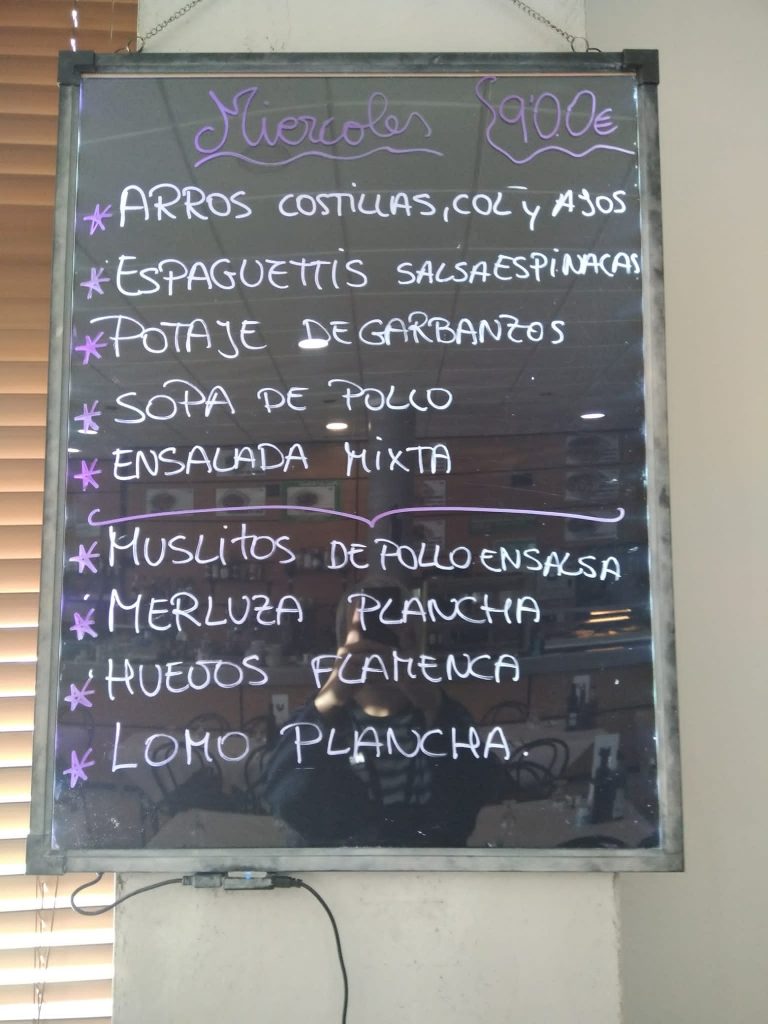 Miercoles 9'00€
* ARROS COSTILLAS, COL Y AJOS
* ESPAGUETTIS SALSA ESPINACAS
* POTAJE DE GARBANZOS
* SOPA DE POLLO
* ENSALADA MIXTA
* MUSLITOS DE POLLO EN SALSA
* MERLUZA PLANCHA
* HUEVOS FLAMENCA
* LOMO PLANCHA.